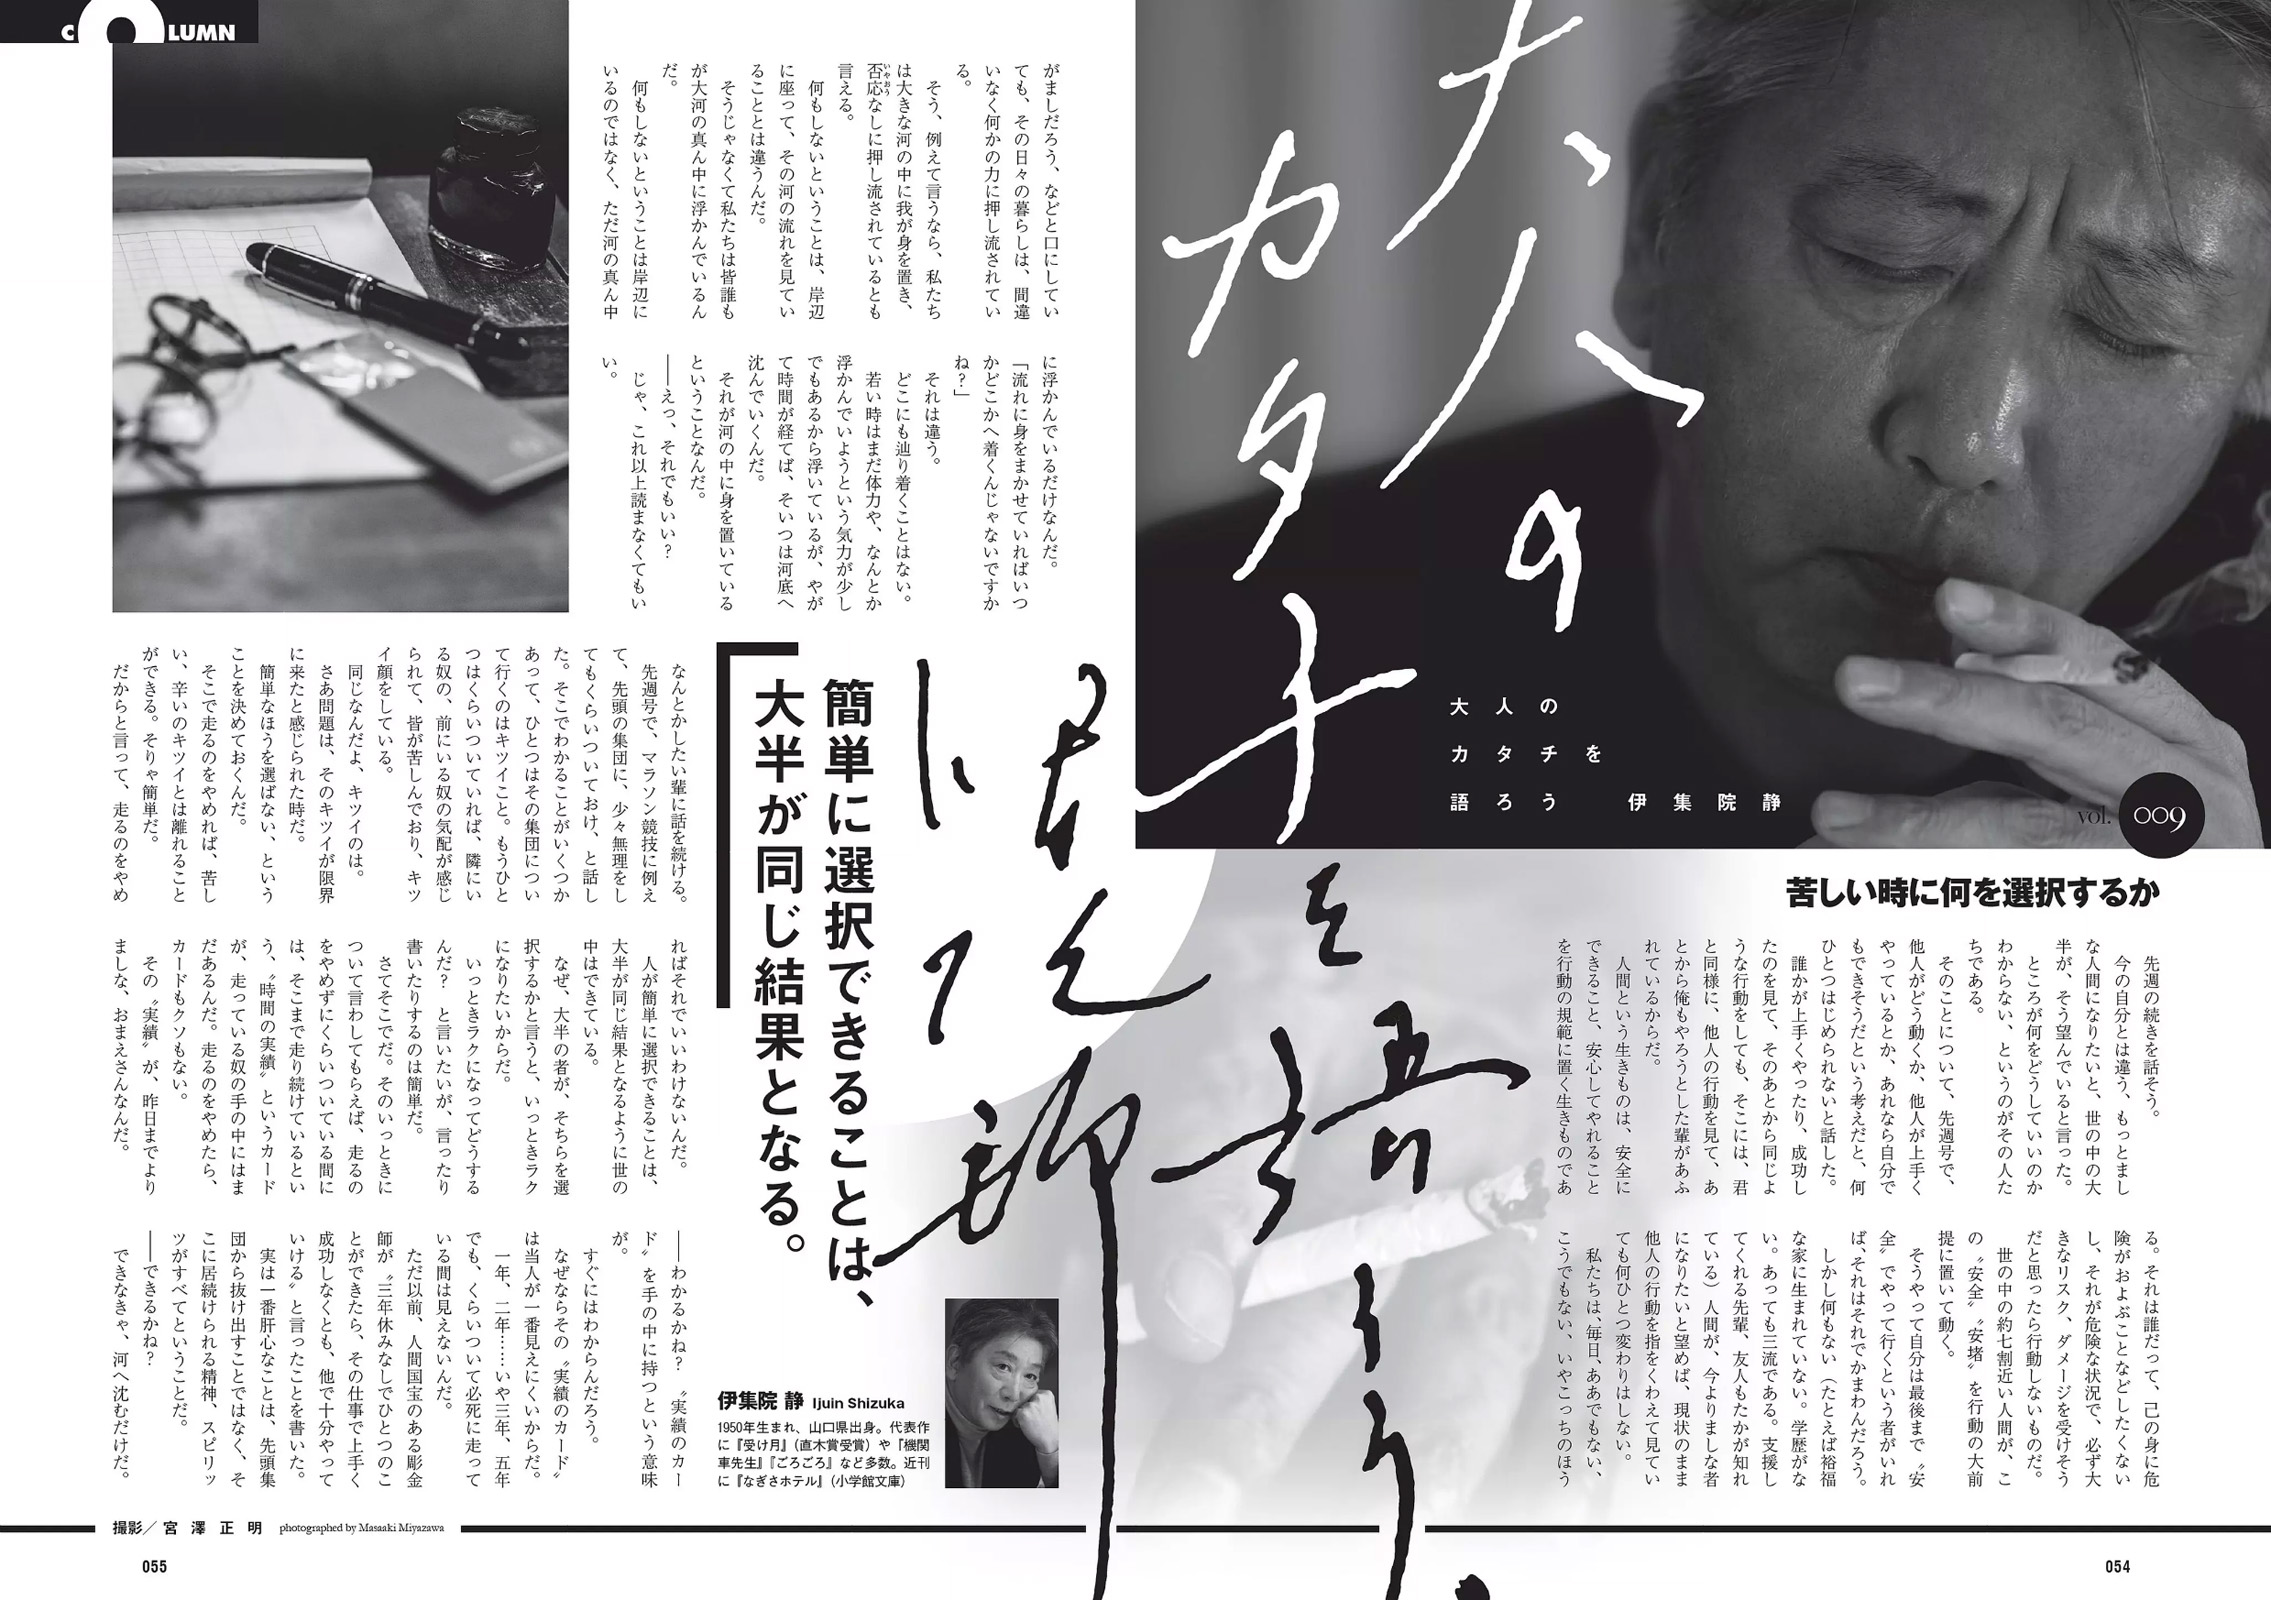 COLUMN
大人の
カタチ
を語ろう。
伊集院静
大人の
カタチを
語ろう 伊集院静
vol. 009
苦しい時に何を選択するか
先週の続きを話そう。
今の自分とは違う、もっとまし
な人間になりたいと、世の中の大
半が、そう望んでいると言った。
ところが何をどうしていいのか
わからない、というのがその人た
ちである。
そのことについて、先週号で、
他人がどう動くか、他人が上手く
やっているとか、あれなら自分で
もできそうだという考えだと、何
ひとつはじめられないと話した。
誰かが上手くやったり、成功し
たのを見て、そのあとから同じよ
うな行動をしても、そこには、君
と同様に、他人の行動を見て、あ
とから俺もやろうとした輩があふ
れているからだ。
人間という生きものは、安全に
できること、安心してやれること
を行動の規範に置く生きものであ
る。それは誰だって、己の身に危
険がおよぶことなどしたくない
し、それが危険な状況で、必ず大
きなリスク、ダメージを受けそう
だと思ったら行動しないものだ。
世の中の約七割近い人間が、こ
の〝安全〟〝安堵〟を行動の大前
提に置いて動く。
そうやって自分は最後まで〝安
全〟でやって行くという者がいれ
ば、それはそれでかまわんだろう。
しかし何もない（たとえば裕福
な家に生まれていない。学歴がな
い。あっても三流である。支援し
てくれる先輩、友人もたかが知れ
ている）人間が、今よりましな者
になりたいと望めば、現状のまま
他人の行動を指をくわえて見てい
ても何ひとつ変わりはしない。
私たちは、毎日、ああでもない、
こうでもない、いやこっちのほう
がましだろう、などと口にしてい
ても、その日々の暮らしは、間違
いなく何かの力に押し流されてい
る。
そう、例えて言うなら、私たち
は大きな河の中に我が身を置き、
否応いやおうなしに押し流されているとも
言える。
何もしないということは、岸辺
に座って、その河の流れを見てい
ることとは違うんだ。
そうじゃなくて私たちは皆誰も
が大河の真ん中に浮かんでいるん
だ。
何もしないということは岸辺に
いるのではなく、ただ河の真ん中
に浮かんでいるだけなんだ。
「流れに身をまかせていればいつ
かどこかへ着くんじゃないですか
ね？」
それは違う。
どこにも辿り着くことはない。
若い時はまだ体力や、なんとか
浮かんでいようという気力が少し
でもあるから浮いているが、やが
て時間が経てば、そいつは河底へ
沈んでいくんだ。
それが河の中に身を置いている
ということなんだ。
――えっ、それでもいい？
じゃ、これ以上読まなくてもい
い。
簡単に選択できることは、
大半が同じ結果となる。
なんとかしたい輩に話を続ける。
先週号で、マラソン競技に例え
て、先頭の集団に、少々無理をし
てもくらいついておけ、と話し
た。そこでわかることがいくつか
あって、ひとつはその集団につい
て行くのはキツイこと。もうひと
つはくらいついていれば、隣にい
る奴の、前にいる奴の気配が感じ
られて、皆が苦しんでおり、キツ
イ顔をしている。
同じなんだよ、キツイのは。
さあ問題は、そのキツイが限界
に来たと感じられた時だ。
簡単なほうを選ばない、という
ことを決めておくんだ。
そこで走るのをやめれば、苦し
い、辛いのキツイとは離れること
ができる。そりゃ簡単だ。
だからと言って、走るのをやめ
ればそれでいいわけないんだ。
人が簡単に選択できることは、
大半が同じ結果となるように世の
中はできている。
なぜ、大半の者が、そちらを選
択するかと言うと、いっときラク
になりたいからだ。
いっときラクになってどうする
んだ？ と言いたいが、言ったり
書いたりするのは簡単だ。
さてそこでだ。そのいっときに
ついて言わしてもらえば、走るの
をやめずにくらいついている間に
は、そこまで走り続けているとい
う、〝時間の実績〟というカード
が、走っている奴の手の中にはま
だあるんだ。走るのをやめたら、
カードもクソもない。
その〝実績〟が、昨日までより
ましな、おまえさんなんだ。
――わかるかね？ 〝実績のカー
ド〟を手の中に持つという意味
が。
すぐにはわからんだろう。
なぜならその〝実績のカード〟
は当人が一番見えにくいからだ。
一年、二年……いや三年、五年
でも、くらいついて必死に走って
いる間は見えないんだ。
ただ以前、人間国宝のある彫金
師が〝三年休みなしでひとつのこ
とができたら、その仕事で上手く
成功しなくとも、他で十分やって
いける〟と言ったことを書いた。
実は一番肝心なことは、先頭集
団から抜け出すことではなく、そ
こに居続けられる精神、スピリッ
ツがすべてということだ。
――できるかね？
できなきゃ、河へ沈むだけだ。
伊集院 静 Ijuin Shizuka
1950年生まれ、山口県出身。代表作
に『受け月』（直木賞受賞）や『機関
車先生』『ごろごろ』など多数。近刊
に『なぎさホテル』（小学館文庫）
撮影／宮澤正明 photographed by Masaaki Miyazawa
055
054